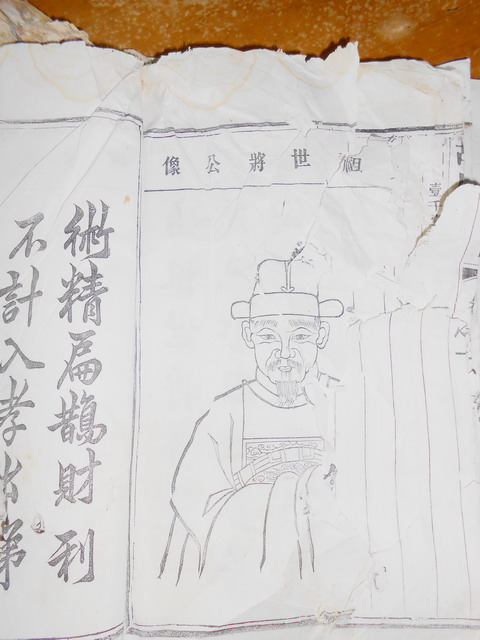 祖世將公像
術精扁鵲財利
不計入孝出弟